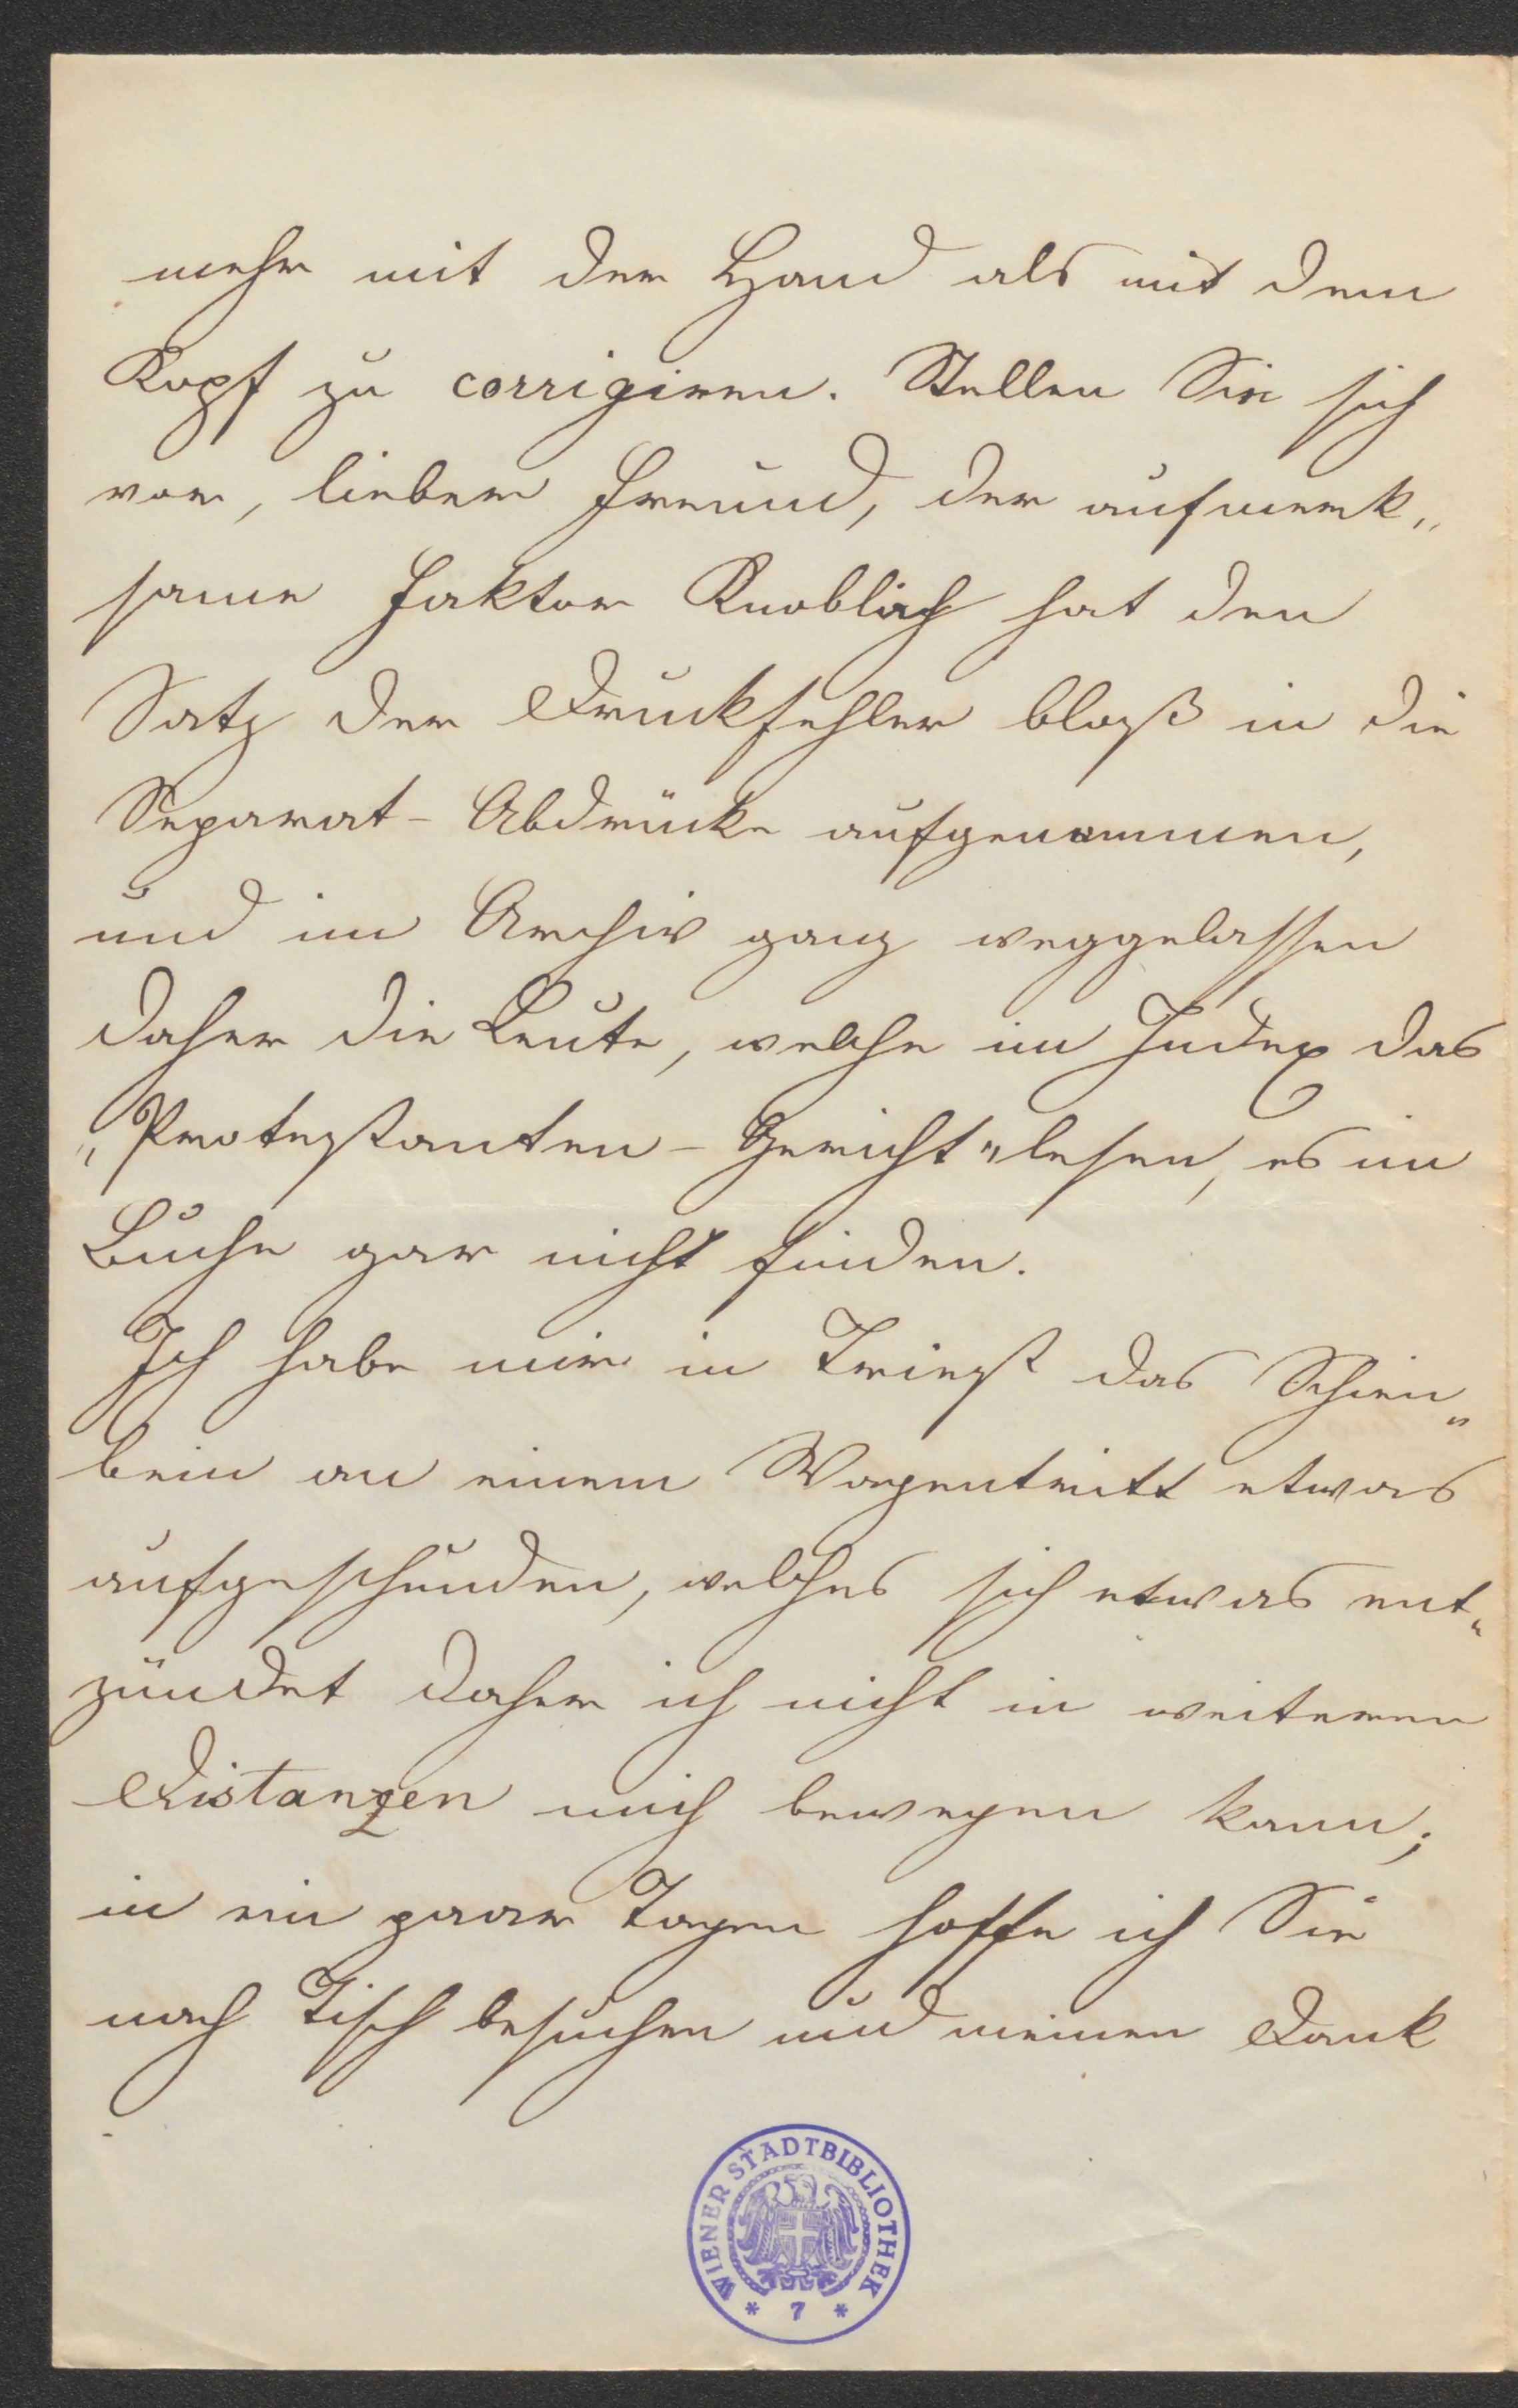 mehr mit der Hand als mit dem
Kopf zu corrigiren. Stellen Sie sich
vor, lieber Freund, der aufmerk„
same Faktor Knoblich hat den
Satz der Druckfehler bloß in die
Separat-Abdrücke aufgenommen,
und im Archiv ganz weggelassen
daher die Leute, welche im Index das
„Protestanten-Gericht" lesen, es im
Buche gar nicht finden.
Ich habe mir in Triest das Schien„
bein an einem Wagentritt etwas
aufgeschunden, welches sich etwas ent„
zündet daher ich nicht in weiteren
Distanzen mich bewegen kann;
in ein paar Tagen hoffe ich Sie
nach Tisch besuchen und meinen Dank
WIENER STADTBIBLIOTHEK
* 7 *